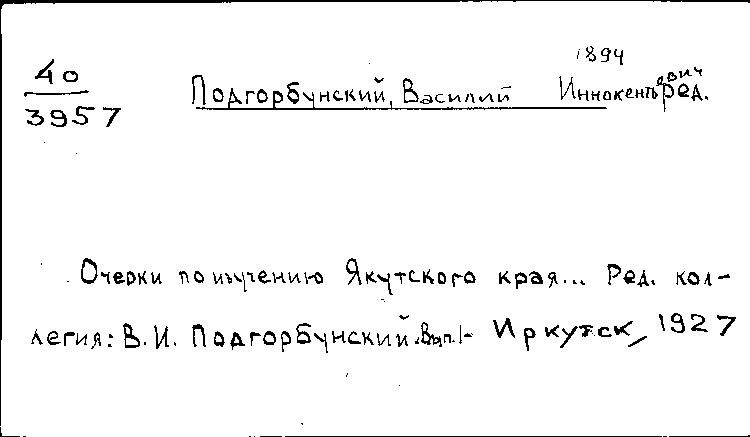 1894
40
3957
Подгорбунский, Василий Иннокентьевич ред.
Очерки по изучению Якутского края... Ред. кол-
легия: В.И. Подгорбунский. Вып.1- Иркутск, 1927